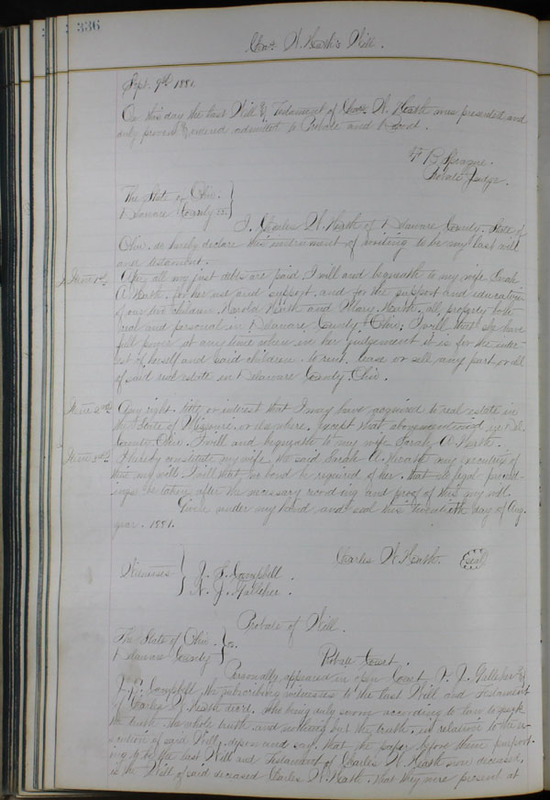 336
Chas. H. Heath's Will.
Sept. 9th 1881.
On this day the last Will & Testament of Chas. H. Heath was presented and
duly proven & ordered admitted to Probate and Record.
Sprague
Probate Judge.
The State of Ohio
Delaware County ss.
I, Charles H. Heath of Delaware County, State of
Ohio, do hereby declare this instrument of writing to be my last will
and testament.
Item 1st. After all my just debts are paid I will and bequeath to my wife, Sarah
A. Heath, for her use and support, and for the support and education
of our two children, Harold Heath and Mary Heath, all property both
real and personal in Delaware County, Ohio; I will that she have
full power at any time when in her judgement it is for the inter-
est of herself and said children to rent, lease or sell any part or all
of said real estate in Delaware County, Ohio.
Item 2nd. Any right, title or interest that I may have acquired to real estate in
the State of Missouri, or elsewhere, except that above mentioned in Del.
County Ohio, I will and bequeath to my wife Sarah A. Heath.
Item 3rd. I hereby constitute my wife, the said Sarah A. Heath my executrix of
this my will. I will that no bond be required of her, that all legal proceed-
ings be taken after the necessary recording and proof of this my will.
Given under my hand and seal this Twentieth day of Aug.
year 1881.
Charles H. Heath. Seal
Witnesses
J. S. Campbell.
N. J. Galleher.
Probate of Will.
The State of Ohio
Delaware County ss.
Probate Court.
Personally appeared in open Court, N. J. Galleher &
Campbell, the subscribing witnesses to the last Will and testament
of Charles H. Heath dec'd, who being duly sworn according to law to speak
the truth, the whole truth and nothing but the truth, in relation to the ex-
ecution of said Will, depose and say, that the paper before them purport-
ing to be the last Will and testament of Charles H. Heath now deceased,
is the Will of said deceased Charles H. Heath, that they were present at